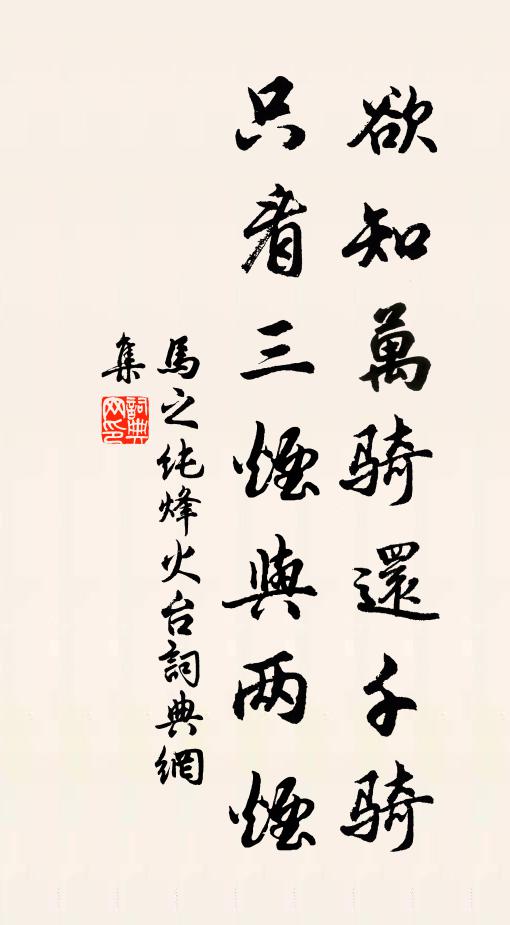 欲知萬騎還千騎
只看三煙與两煙
馬之纯烽火台詞典網
集
詞典网印